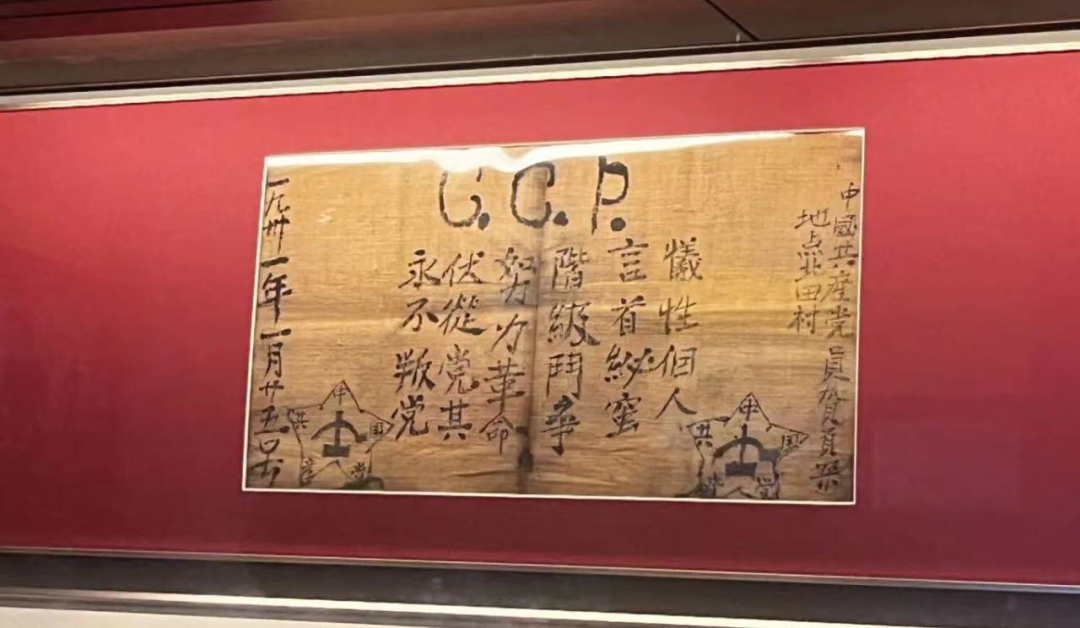 C.C.P.
中國共産党員賀頁朵
地点北田村
犧性個人
言首紗蜜
階級鬥爭
努力革命
伏從党其
永不叛党
一九卅一年一月廿五号
中国共党
中国共党